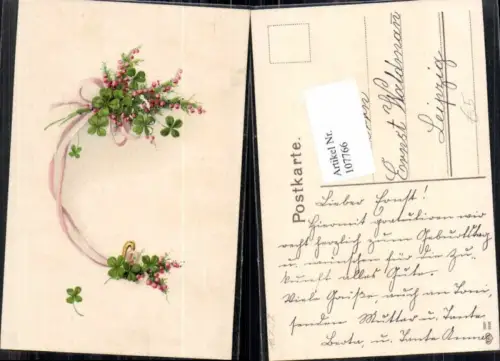 Postkarte.
Artikel Nr.
107766
Herrn
Ernst Waldman
Leipzig
Lieber Ernst!
Hiermit gratulieren wir
recht herzlich zum Geburtstag
u. wünschen für die Zu-
kunft alles Gute.
Viele Grüße, auch an Toni,
senden Mutter u. Tante
Berta, u. Tante Anna